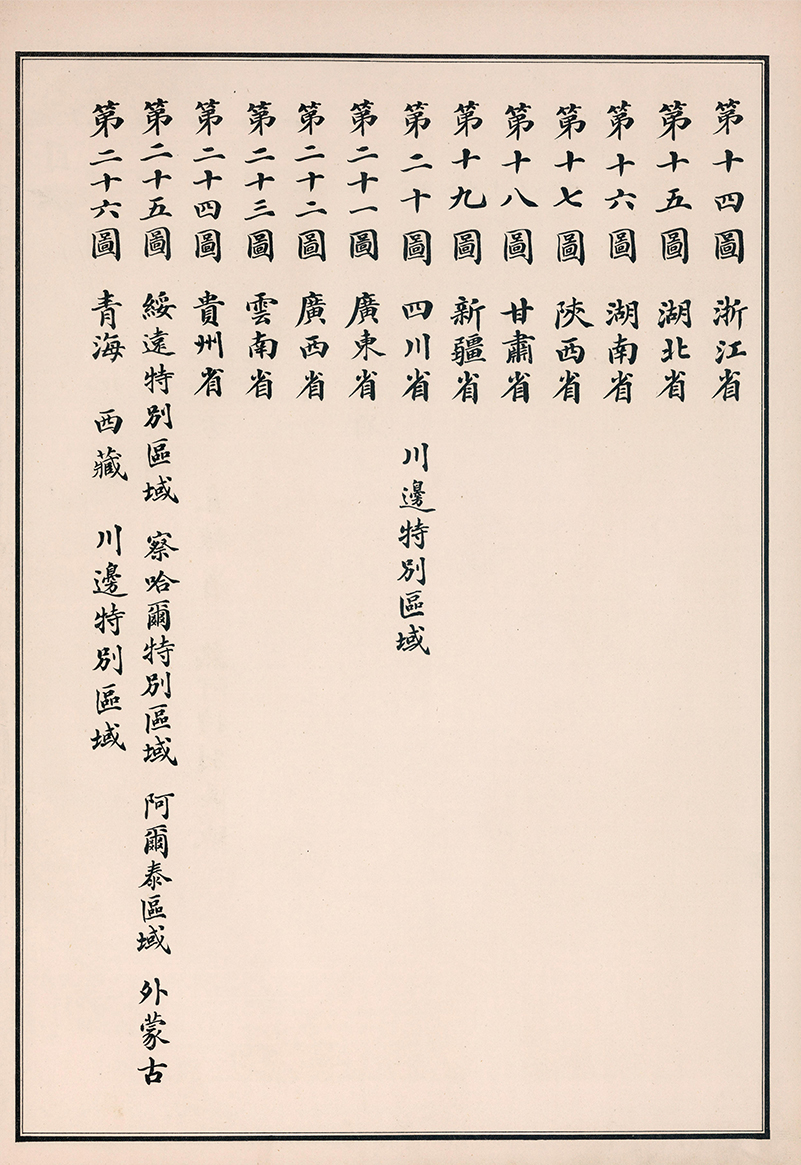 第十四圖 浙江省
第十五圖 湖北省
第十六圖 湖南省
第十七圖 陝西省
第十八圖 甘肅省
第十九圖 新疆省
第二十圖 四川省 川邊特別區域
第二十一圖 廣東省
第二十二圖 廣西省
第二十三圖 雲南省
第二十四圖 貴州省
第二十五圖 綏遠特別區域 察哈爾特別區域 阿爾泰區域 外蒙古
第二十六圖 青海 西藏 川邊特別區域